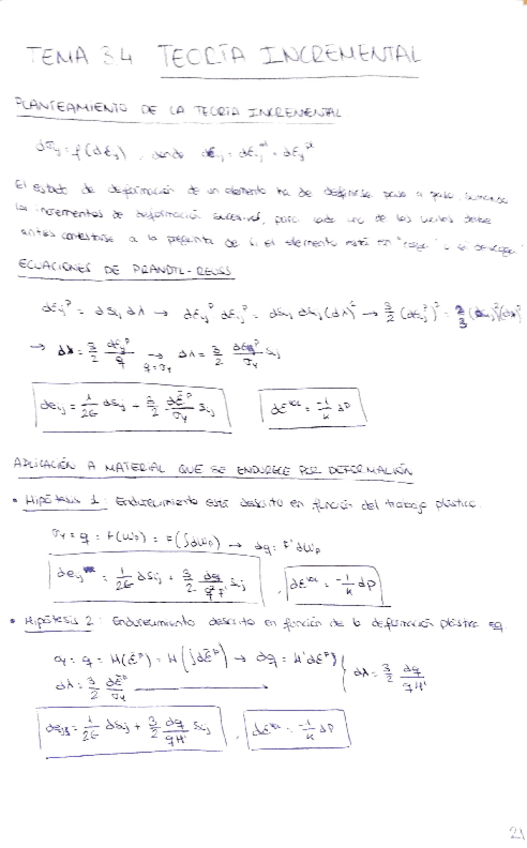 TEMA 3.4 TEORÍA INCREMENTAL
PLANTEAMIENTO DE LA TEORÍA INCREMENTAL
dσij = f(dεij), siendo dεij = dεij^el + dεij^pl
El estado de deformación de un elemento ha de definirse paso a paso, sumando
los incrementos de deformación sucesivos, para cada uno de los cuales debe
antes contestarse a la pregunta de si el elemento está en "carga" o se descarga
ECUACIONES DE PRANDTL-REUSS
→ dλ = 3/2 dε^p/q → q = σy dλ = 3/2 dε^p/σy
deij = 1/2G dSij + 3/2 dε̄^p/σy Sij dε^vol = -1/K dp
APLICACIÓN A MATERIAL QUE SE ENDURECE POR DEFORMACIÓN
• Hipótesis 1: Endurecimiento está descrito en función del trabajo plástico.
σy = q = F(Wp) = F(∫dWp) → dq = F' dWp
deij = 1/2G dSij + 3/2 dq/q²F' Sij , dε^vol = -1/K dp
• Hipótesis 2: Endurecimiento descrito en función de la deformación plástica eq.
σy = q = H(ε̄^p) = H(∫dε̄^p) → dq = H' dε̄^p } dλ = 3/2 dq/qH'
dλ = 3/2 dε̄^p/σy
deij = 1/2G dSij + 3/2 dq/qH' Sij , dε^vol = -1/K dp
21